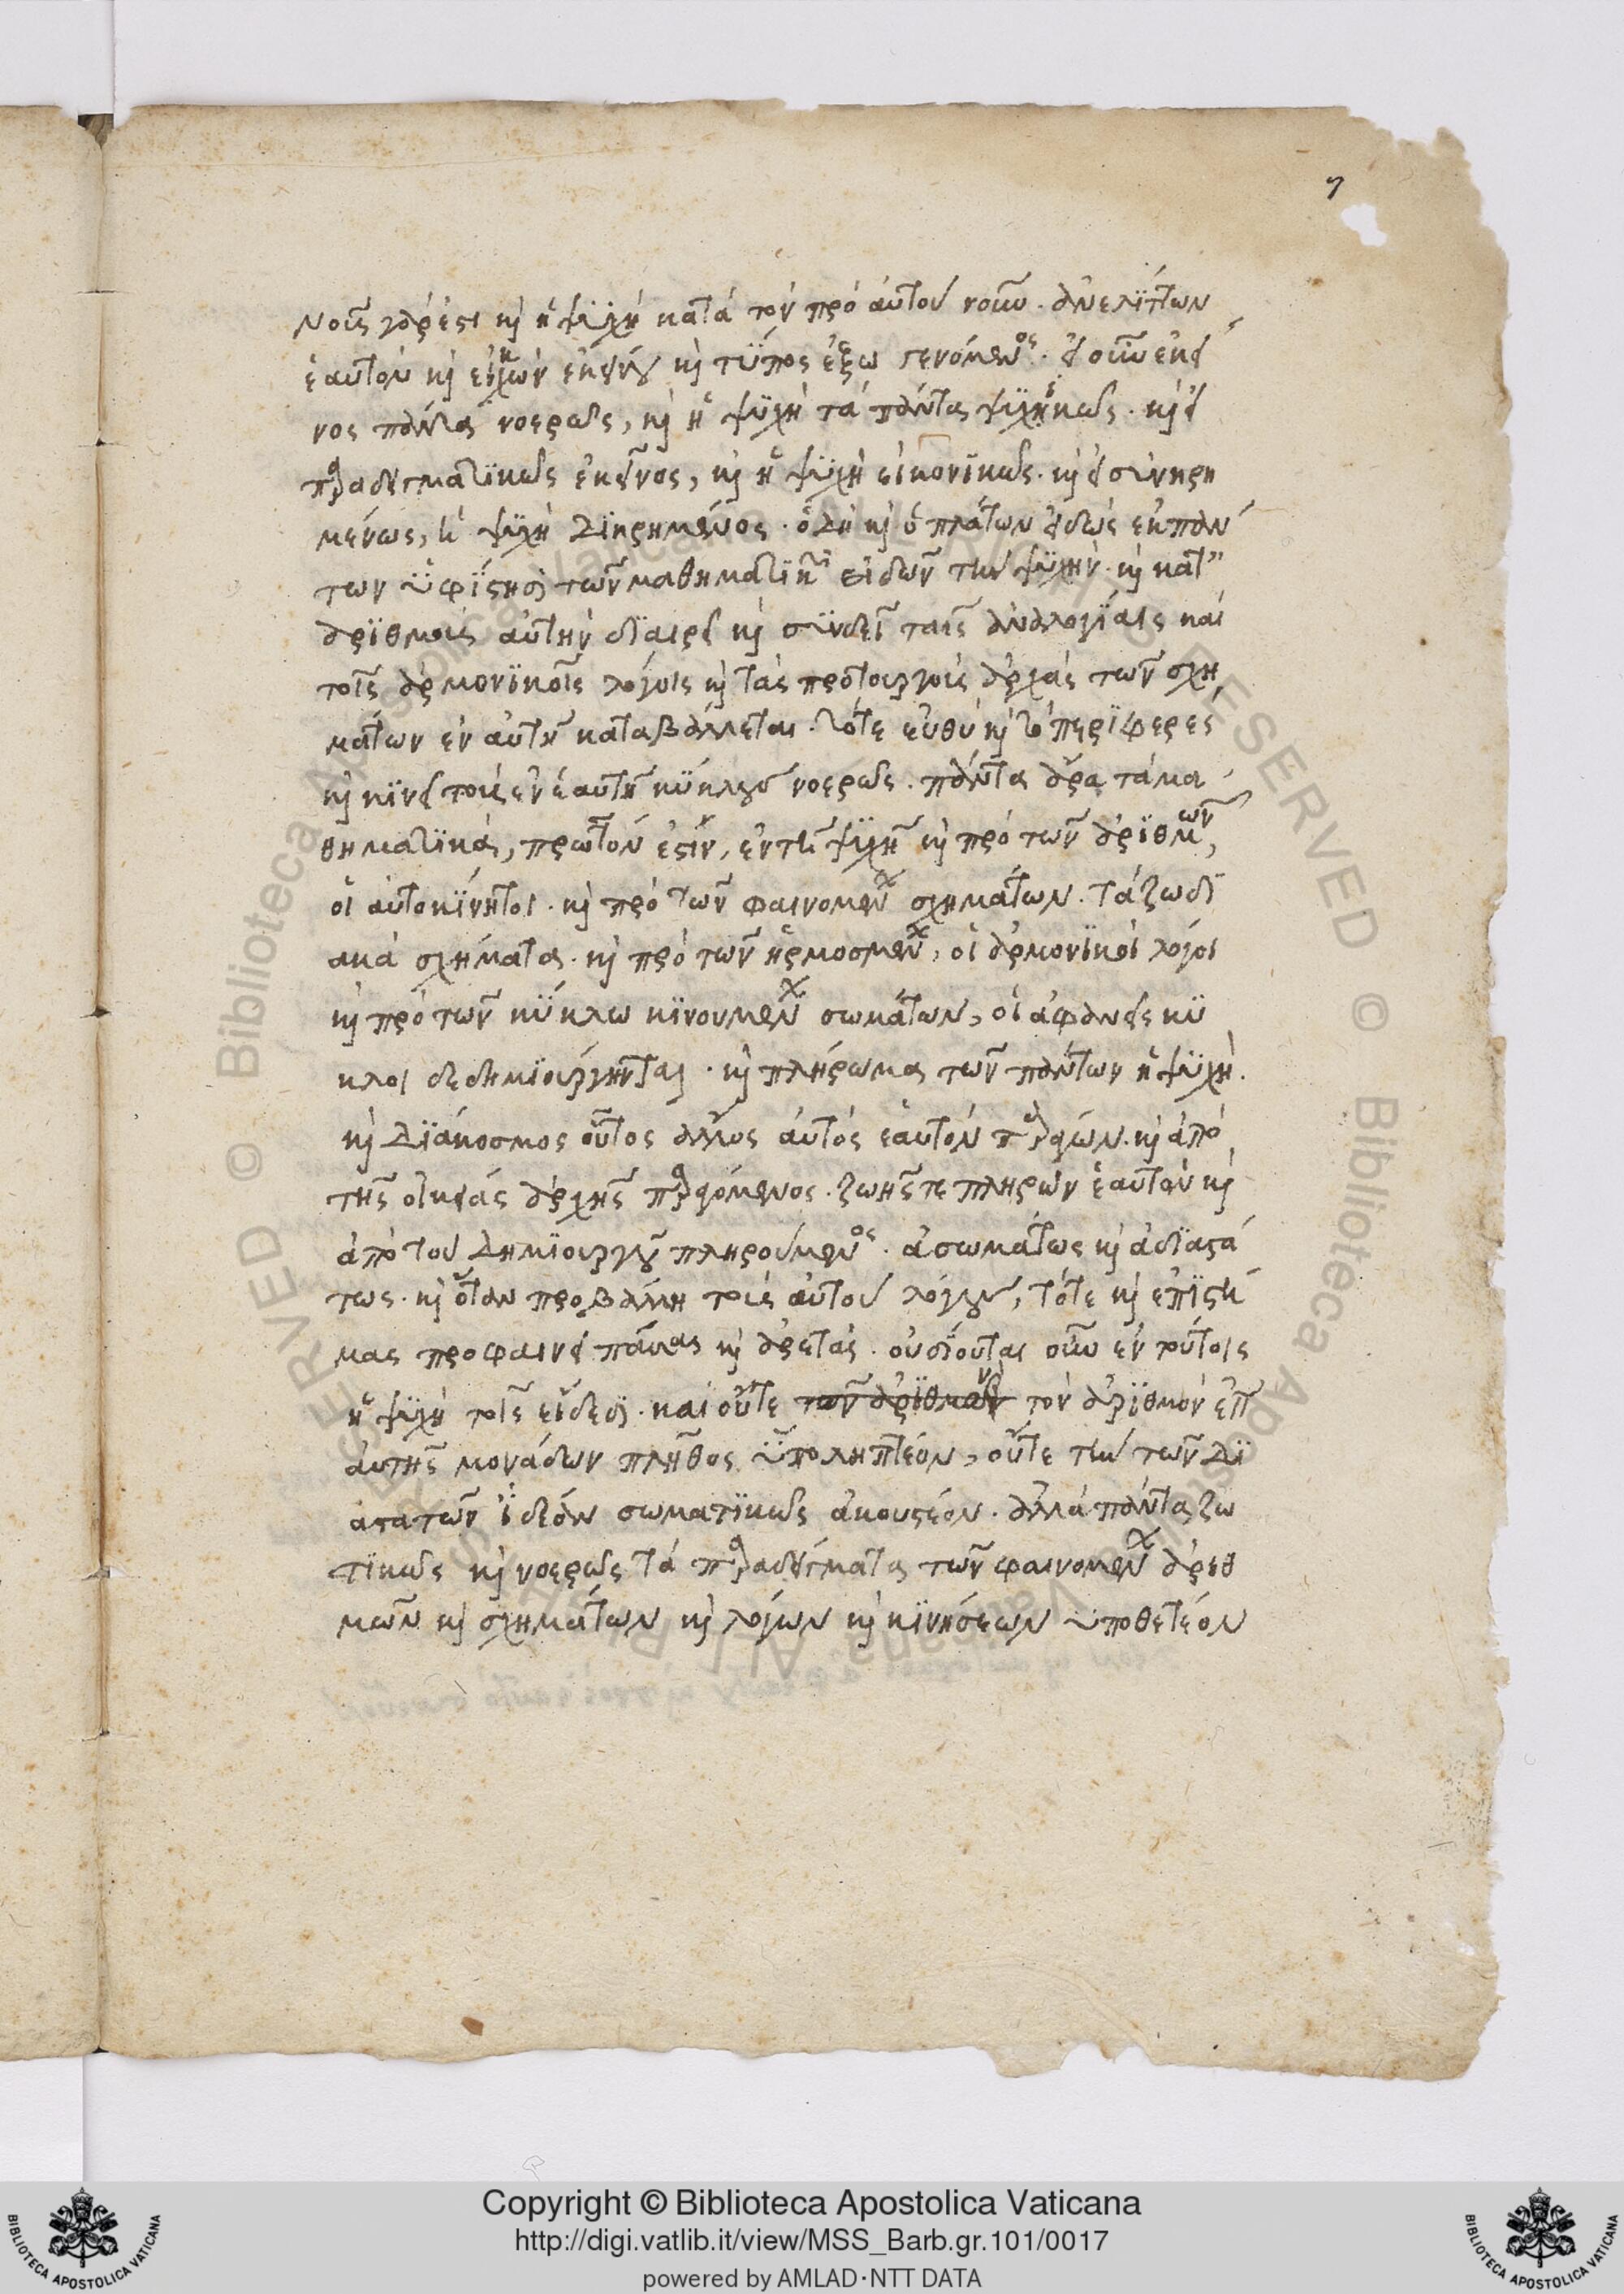 7
νοῦς γάρ ἐστι καὶ ἡ ψυχὴ κατὰ τὸν πρὸ αὐτοῦ νοῦν. ἀνελίττων
ἑαυτὸν καὶ εἰκὼν ἐκείνου καὶ τύπος ἔξω γενόμενος. εἰ οὖν ἐκεῖ
νος πάντα νοερῶς, καὶ ἡ ψυχὴ τὰ πάντα ψυχικῶς. καὶ εἰ
παραδειγματικῶς ἐκεῖνος, καὶ ἡ ψυχὴ εἰκονικῶς. καὶ εἰ συνηρη
μένως, ἡ ψυχὴ διηρημένος. ὃ δὴ καὶ ὁ πλάτων εἰδὼς ἐκ πάν
των ὑφίστησι τῶν μαθηματικῶν εἰδῶν τὴν ψυχὴν. καὶ κατ'
ἀριθμοὺς αὐτὴν διαιρεῖ καὶ συνδεῖ ταῖς ἀναλογίαις καὶ
τοῖς ἁρμονικοῖς λόγοις καὶ τὰς προτουργοὺς ἀρχὰς τῶν σχη
μάτων ἐν αὐτῇ καταβάλλεται. τό τε εὐθὺ καὶ τὸ περιφερες
καὶ κινεῖ τοὺς ἐν ἑαυτῇ κύκλους νοερῶς. πάντα ἄρα τὰ μα
θηματικὰ, πρῶτόν ἐστιν, ἐν τῇ ψυχῇ καὶ πρὸ τῶν ἀριθμῶν,
οἱ αὐτοκίνητοι. καὶ πρὸ τῶν φαινομένων σχημάτων. τὰ ζωδι
ακὰ σχήματα. καὶ πρὸ τῶν ἡρμοσμένων, οἱ ἁρμονικοὶ λόγοι
καὶ πρὸ τῶν κύκλω κινουμένων σωμάτων, οἱ ἀφανεῖς κύ
κλοι δεδημιούργηνται. καὶ πλήρωμα τῶν πάντων ἡ ψυχὴ.
καὶ διάκοσμος οὗτος ἄλλος αὐτὸς ἑαυτὸν παράγων. καὶ ἀπὸ
τῆς οἰκείας ἀρχῆς παραγόμενος. ζωῆς τε πληρῶν ἑαυτὸν καὶ
ἀπὸ τοῦ δημιουργοῦ πληρούμενος. ἀσωμάτως καὶ ἀδιαστά
τως. καὶ ὅταν προβάλλη τοὺς αὐτοῦ λόγους, τότε καὶ ἐπιστή
μας προφαίνει πάσας καὶ ἀρετάς. οὐσίουται οὖν ἐν τούτοις
ἡ ψυχὴ τοῖς εἴδεσι. καὶ οὔτε τῶν ἀριθμῶν τὸν ἀριθμὸν ἐπ
αὐτῆς μονάδων πλῆθος ὑποληπτέον, οὔτε τὴν τῶν δι
αστατῶν ἰδέαν σωματικῶς ἀκουστέον. ἀλλὰ πάντα ζω
τικῶς καὶ νοερῶς τὰ παραδείγματα τῶν φαινομένων ἀριθ
μῶν καὶ σχημάτων καὶ λόγων καὶ κινήσεων ὑποθετέον
Copyright © Biblioteca Apostolica Vaticana
http://digi.vatlib.it/view/MSS_Barb.gr.101/0017
powered by AMLAD·NTT DATA